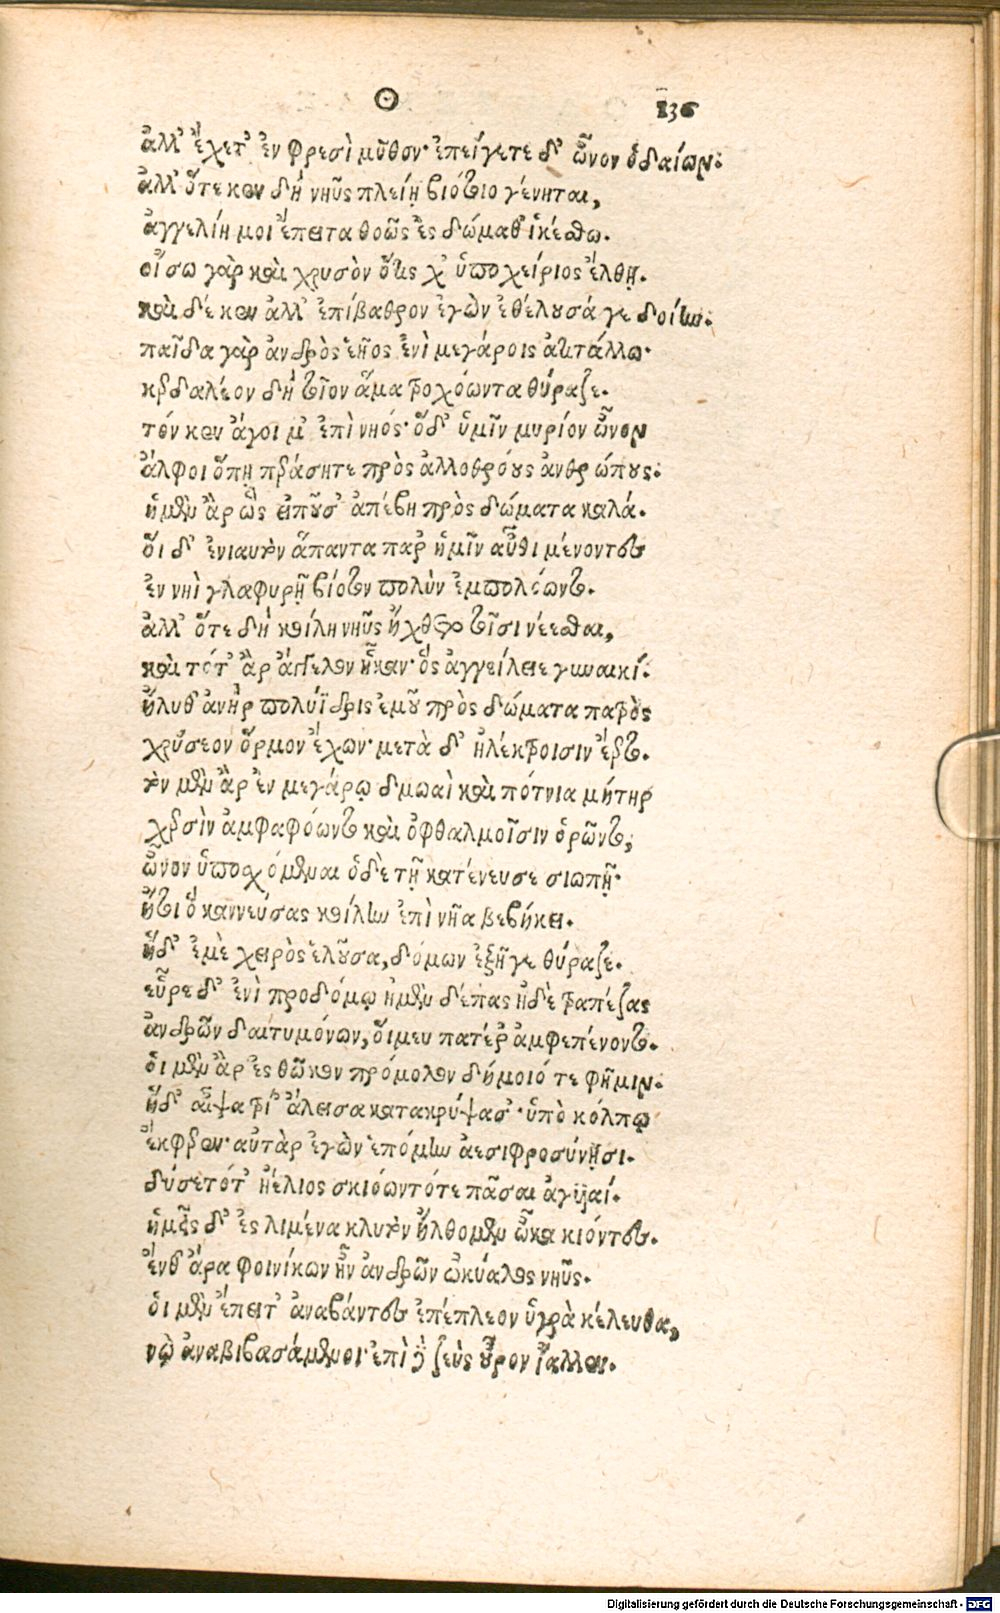 Θ 136
ἀλλ' ἔχετ' ἐν φρεσὶ μῦθον· ἐπείγετε δ' ὦνον ὁδαίων.
ἀλλ' ὅτε κεν δὴ νηῦς πλείη βιότοιο γένηται,
ἀγγελίη μοι ἔπειτα θοῶς ἐς δώμαθ' ἱκέσθω.
οἴσω γὰρ καὶ χρυσὸν ὅτις χ' ὑποχείριος ἔλθῃ.
καὶ δέ κεν ἀλλ' ἐπίβαθρον ἐγὼν ἐθέλουσά γε δοίην.
παῖδα γὰρ ἀνδρὸς ἑῆος ἐνὶ μεγάροις ἀτιτάλλω·
κερδαλέον δὴ τοῖον ἅμα τροχόωντα θύραζε.
τόν κεν ἄγοι μ' ἐπὶ νηός· ὅδ' ὑμῖν μυρίον ὦνον
ἄλφοι ὅπῃ περάσητε πρὸς ἀλλοθρόους ἀνθρώπους.
ἡ μὲν ἂρ ὣς εἰποῦσ' ἀπέβη πρὸς δώματα καλά.
οἵ δ' ἐνιαυτὸν ἅπαντα παρ' ἡμῖν αὖθι μένοντες
ἐν νηὶ γλαφυρῇ βίοτον πολὺν ἐμπολόωντο.
ἀλλ' ὅτε δὴ κοίλη νηῦς ἤχθετο τοῖσι νέεσθαι,
καὶ τότ' ἂρ ἄγγελον ἧκαν· ὃς ἀγγείλειε γυναικί.
ἤλυθ' ἀνὴρ πολύϊδρις ἐμοῦ πρὸς δώματα πατρὸς
χρύσεον ὅρμον ἔχων· μετὰ δ' ἠλέκτροισιν ἔερτο.
τὸν μὲν ἂρ ἐν μεγάρῳ δμωαὶ καὶ πότνια μήτηρ
χερσὶν ἀμφαφόωντο καὶ ὀφθαλμοῖσιν ὁρῶντο,
ὦνον ὑποσχόμεναι ὁ δὲ τῇ κατένευσε σιωπῇ·
ἤτοι ὁ καννεύσας κοίλην ἐπὶ νῆα βεβήκει.
ἣ δ' ἐμὲ χειρὸς ἑλοῦσα, δόμων ἐξῆγε θύραζε.
εὗρε δ' ἐνὶ προδόμῳ ἠμὲν δέπας ἠδὲ τραπέζας
ἀνδρῶν δαιτυμόνων, οἵ μευ πατέρ' ἀμφεπένοντο.
οἱ μὲν ἂρ ἐς θῶκον πρόμολον δήμοιό τε φῆμιν.
ἣ δ' αἶψα τρί' ἄλεισα κατακρύψασ' ὑπὸ κόλπῳ
ἔκφερεν· αὐτὰρ ἐγὼν ἑπόμην ἀεσιφροσύνῃσι.
δύσετό τ' ἠέλιος σκιόωντό τε πᾶσαι ἀγυιαί.
ἡμεῖς δ' ἐς λιμένα κλυτὸν ἤλθομεν ὦκα κιόντες.
ἔνθ' ἄρα φοινίκων ἦν ἀνδρῶν ὠκύαλος νηῦς.
οἱ μὲν ἔπειτ' ἀναβάντες ἐπέπλεον ὑγρὰ κέλευθα,
νὼ ἀναβιβασάμενοι· ἐπὶ δὲ ζεὺς οὖρον ἴαλλεν.
Digitalisierung gefördert durch die Deutsche Forschungsgemeinschaft - DFG